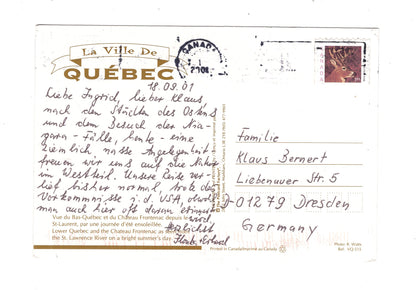 La Ville De
QUÉBEC
18.09.01
Liebe Ingrid, lieber Klaus,
nach den Städten des Ostens
und dem Besuch der Nia-
gara-Fälle, heute - eine
ziemlich nasse Angelegenheit
freuen wir uns auf die Natur
im Westteil. Unsere Reise ver-
lief bisher normal, trotz der
Vorkommnisse i.d. USA, obwohl
man auch hier oft daran erinnert
wird.
Herzlichst
Vue du Bas-Québec et du Château Frontenac depuis le
St-Laurent, par une journée d'été ensoleillée.
Lower Québec and the Château Frontenac as seen from
the St. Lawrence River on a bright summer's day.
CANADA
2001
CANADA
Familie
Klaus Bernert
Liebenauer Str. 5
D-01279 Dresden
Germany
Photo: R. Watts
Printed in Canada/Imprimé au Canada